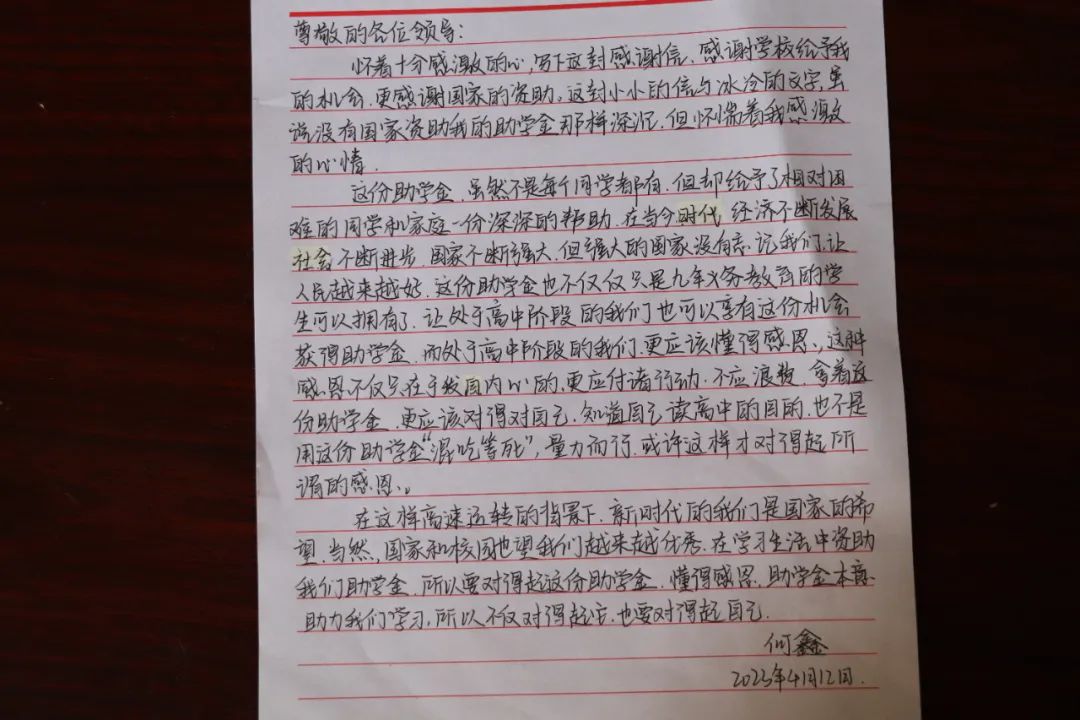 尊敬的各位领导：
怀着十分感激的心，写下这封感谢信，感谢学校给予我
的机会，更感谢国家的资助。这封小小的信与冰冷的文字，虽
说没有国家资助我的助学金那样深沉，但怀揣着我感激
的心情。
这份助学金，虽然不是每个同学都有，但却给予了相对困
难的同学和家庭一份深深的帮助，在当今时代，经济不断发展
社会不断进步，国家不断强大，但强大的国家没有忘记我们，让
人民越来越好，这份助学金也不仅仅只是九年义务教育的学
生可以拥有了，让处于高中阶段的我们也可以享有这份机会
获得助学金，而处于高中阶段的我们，更应该懂得感恩，这种
感恩不仅只在于我自内心的，更应付诸行动，不应浪费，拿着这
份助学金，更应该对得对自己，知道自己读高中的目的，也不是
用这份助学金“混吃等死”，量力而行，或许这样才对得起所
谓的感恩。
在这样高速运转的背景下，新时代的我们是国家的希
望，当然，国家和校园也望我们越来越优秀，在学习生活中资助
我们助学金，所以要对得起这份助学金，懂得感恩，助学金本意
助力我们学习，所以不仅对得起，也要对得起自己。
何鑫
2023年4月12日.